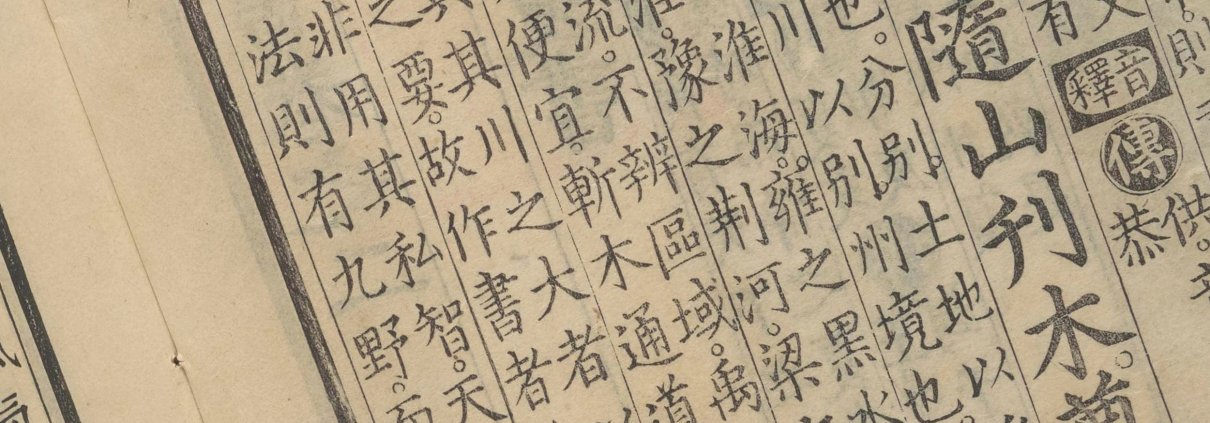 則
供。
文
有
釋音
傳
恭
隨山刊木。
也。分別。土地以
川以別州境也
淮海。雍之黑水
淮。豫之荊河。梁
流。不辨區域。禹
便宜。斬木通道
其其川之大者
之要。故作書者
非用其私智。天
法則有九野。而